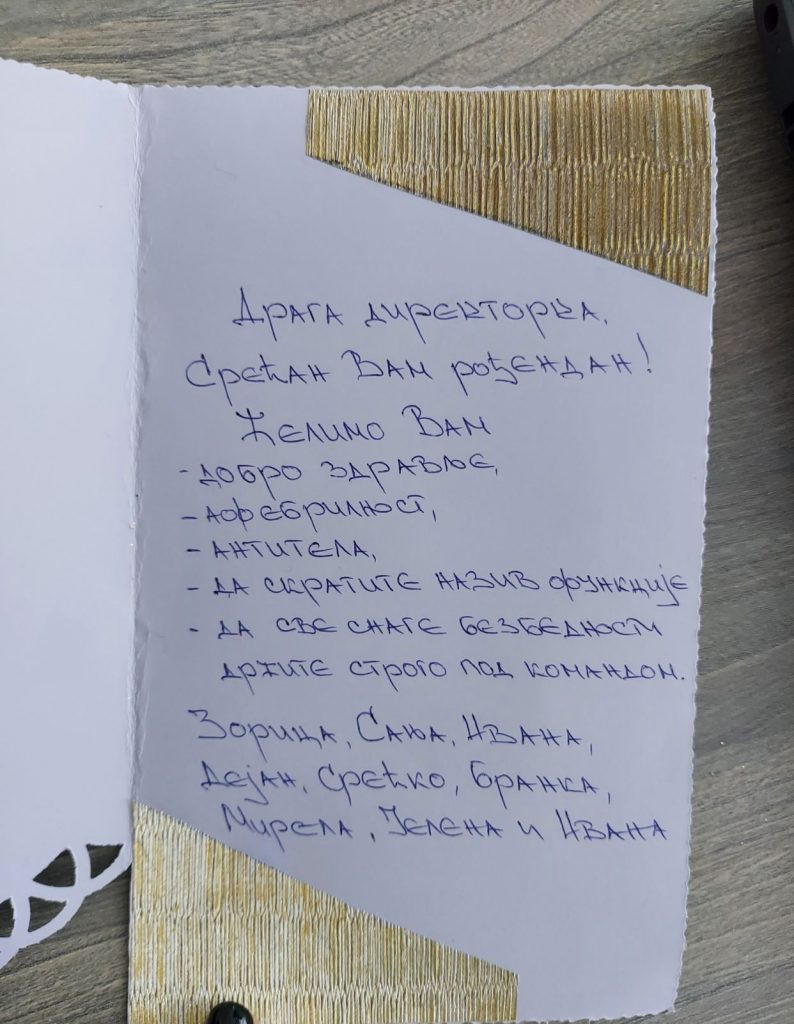 Драга директорка,
Срећан Вам рођендан!
Желимо Вам
- добро здравље,
- афебрилност,
- антитела,
- да скратите назив функције
- да све снаге безбедности
држите строго под командом.
Зорица, Сања, Ивана,
Дејан, Срећко, Бранка,
Мирела, Јелена и Ивана